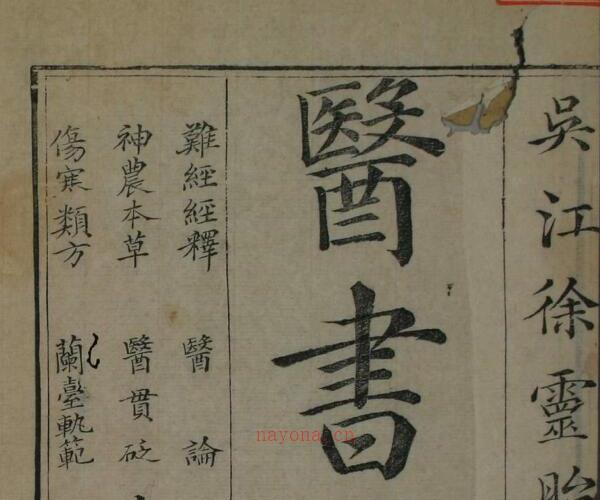 吳江徐靈胎
醫書
難經經釋 醫論
神農本草 醫貫砭
傷寒類方 蘭臺軌範
nayona.cn